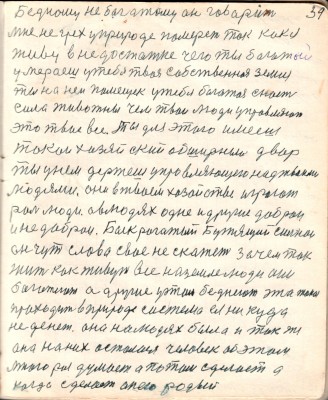 59
Бедному не богатому он говорит
мне не грех у природе помереть так как я
живу в недостатке чего ты богатой
умераеш у тебя твоя собственная земля
ты на ней помещик у тебя богатая
сила животны чем твои люди управляют
это твое все. Ты для этого имееш
такой хозяйский обширный двор
ты у нем держеш управляющего над твоими
людями. они в твоем хозяйстве играют
рол люди. а в людях одне и другие добраи
и недобраи. Бык рогатый Бужящий сильно
он чут слова свое не скажет зачем так
жит как живут все на земле люди они
богатеют а другие у этом беднеют эта такая
проходит в природе система ей никуда
не денет. она на людях была и так же
она на них осталася человек об этом
много раз думает а потом сделает а
когда сделает